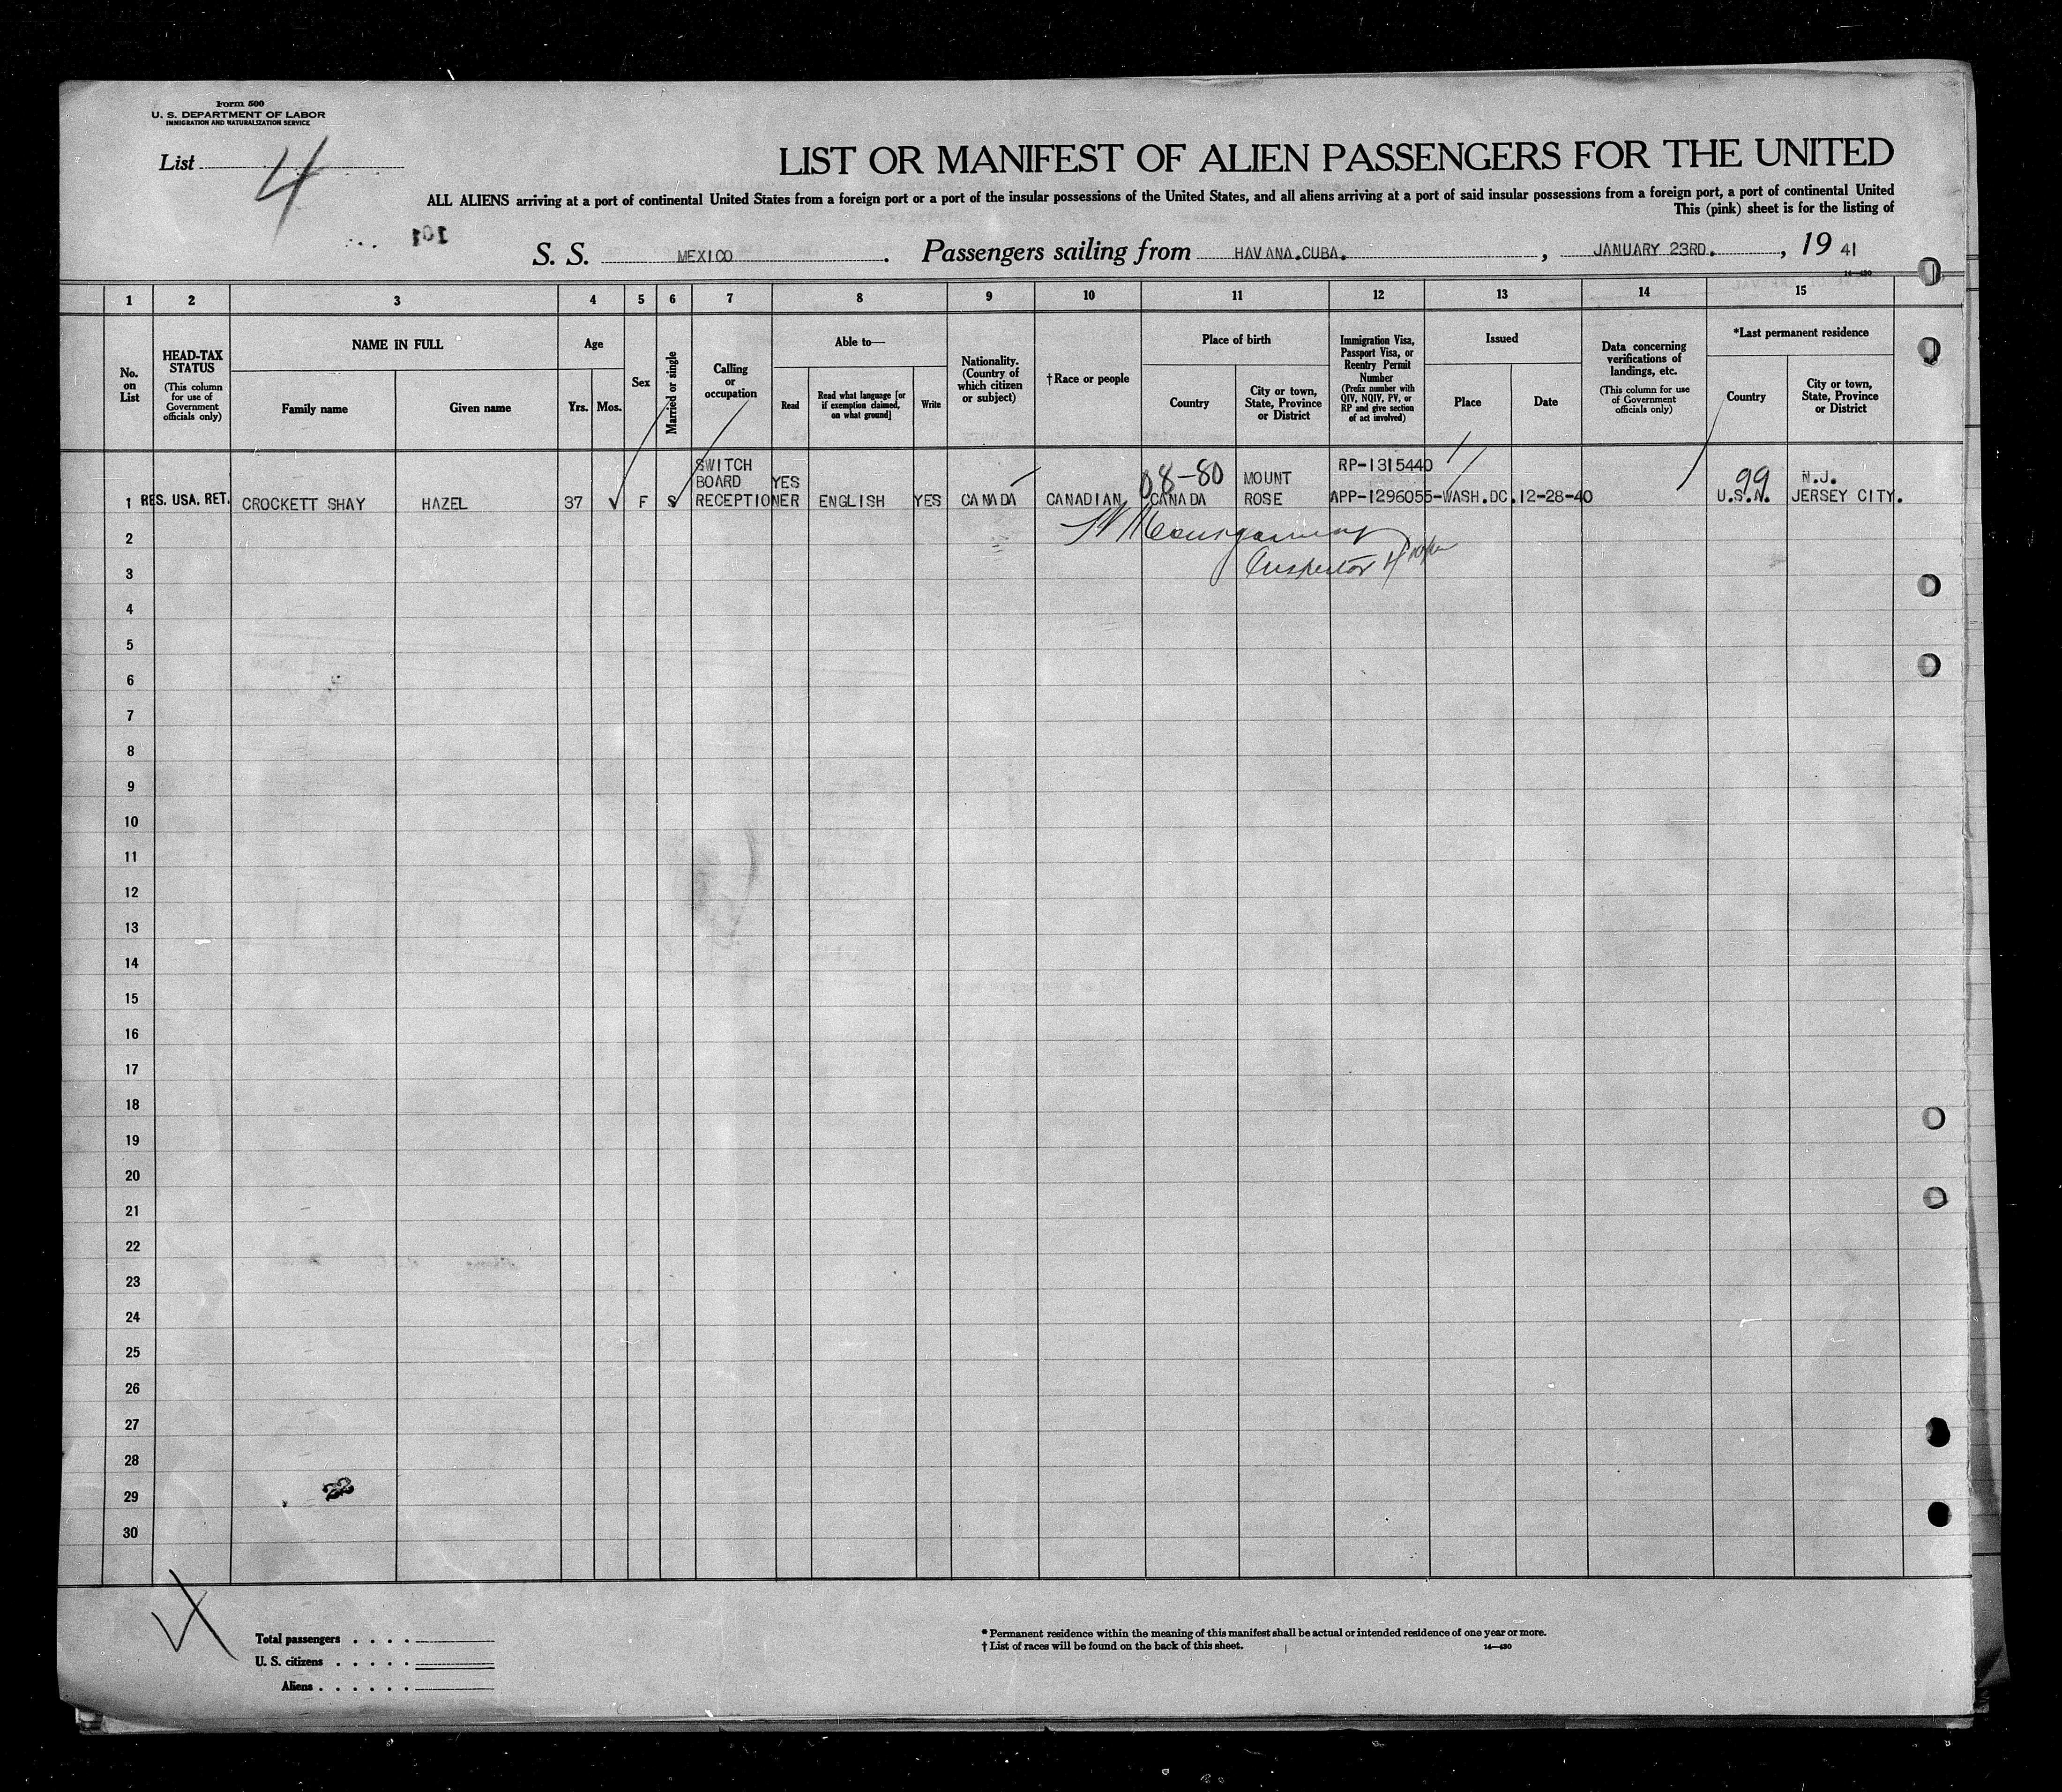 Form 500
U. S. DEPARTMENT OF LABOR
IMMIGRATION AND NATURALIZATION SERVICE
List 4
LIST OR MANIFEST OF ALIEN PASSENGERS FOR THE UNITED
ALL ALIENS arriving at a port of continental United States from a foreign port or a port of the insular possessions of the United States, and all aliens arriving at a port of said insular possessions from a foreign port, a port of continental United
This (pink) sheet is for the listing of
101
S. S. MEXICO. Passengers sailing from HAVANA.CUBA. , JANUARY 23RD. , 19 41
14—430
1 2 3 4 5 6 7 8 9 10 11 12 13 14 15
No. on List
HEAD-TAX STATUS
(This column for use of Government officials only)
NAME IN FULL
Family name
Given name
Age
Yrs. Mos.
Sex
Married or single
Calling or occupation
Able to—
Read
Read what language [or if exemption claimed, on what ground]
Write
Nationality. (Country of which citizen or subject)
†Race or people
Place of birth
Country
City or town, State, Province or District
Immigration Visa, Passport Visa, or Reentry Permit Number
(Prefix number with QIV, NQIV, PV, or RP and give section of act involved)
Issued
Place
Date
Data concerning verifications of landings, etc.
(This column for use of Government officials only)
*Last permanent residence
Country
City or town, State, Province or District
SWITCH RP-1315440
BOARD YES 08-80 MOUNT 99 N.J.
1 RES. USA. RET. CROCKETT SHAY HAZEL 37 F S RECEPTIONER ENGLISH YES CANADA CANADIAN CANADA ROSE APP-1296055-WASH.DC. 12-28-40 U.S.A. JERSEY CITY.
2
Inspector
3
4
5
6
7
8
9
10
11
12
13
14
15
16
17
18
19
20
21
22
23
24
25
26
27
28
29
30
Total passengers . . . .
U. S. citizens . . . . .
Aliens . . . . . .
* Permanent residence within the meaning of this manifest shall be actual or intended residence of one year or more.
† List of races will be found on the back of this sheet.
14—430